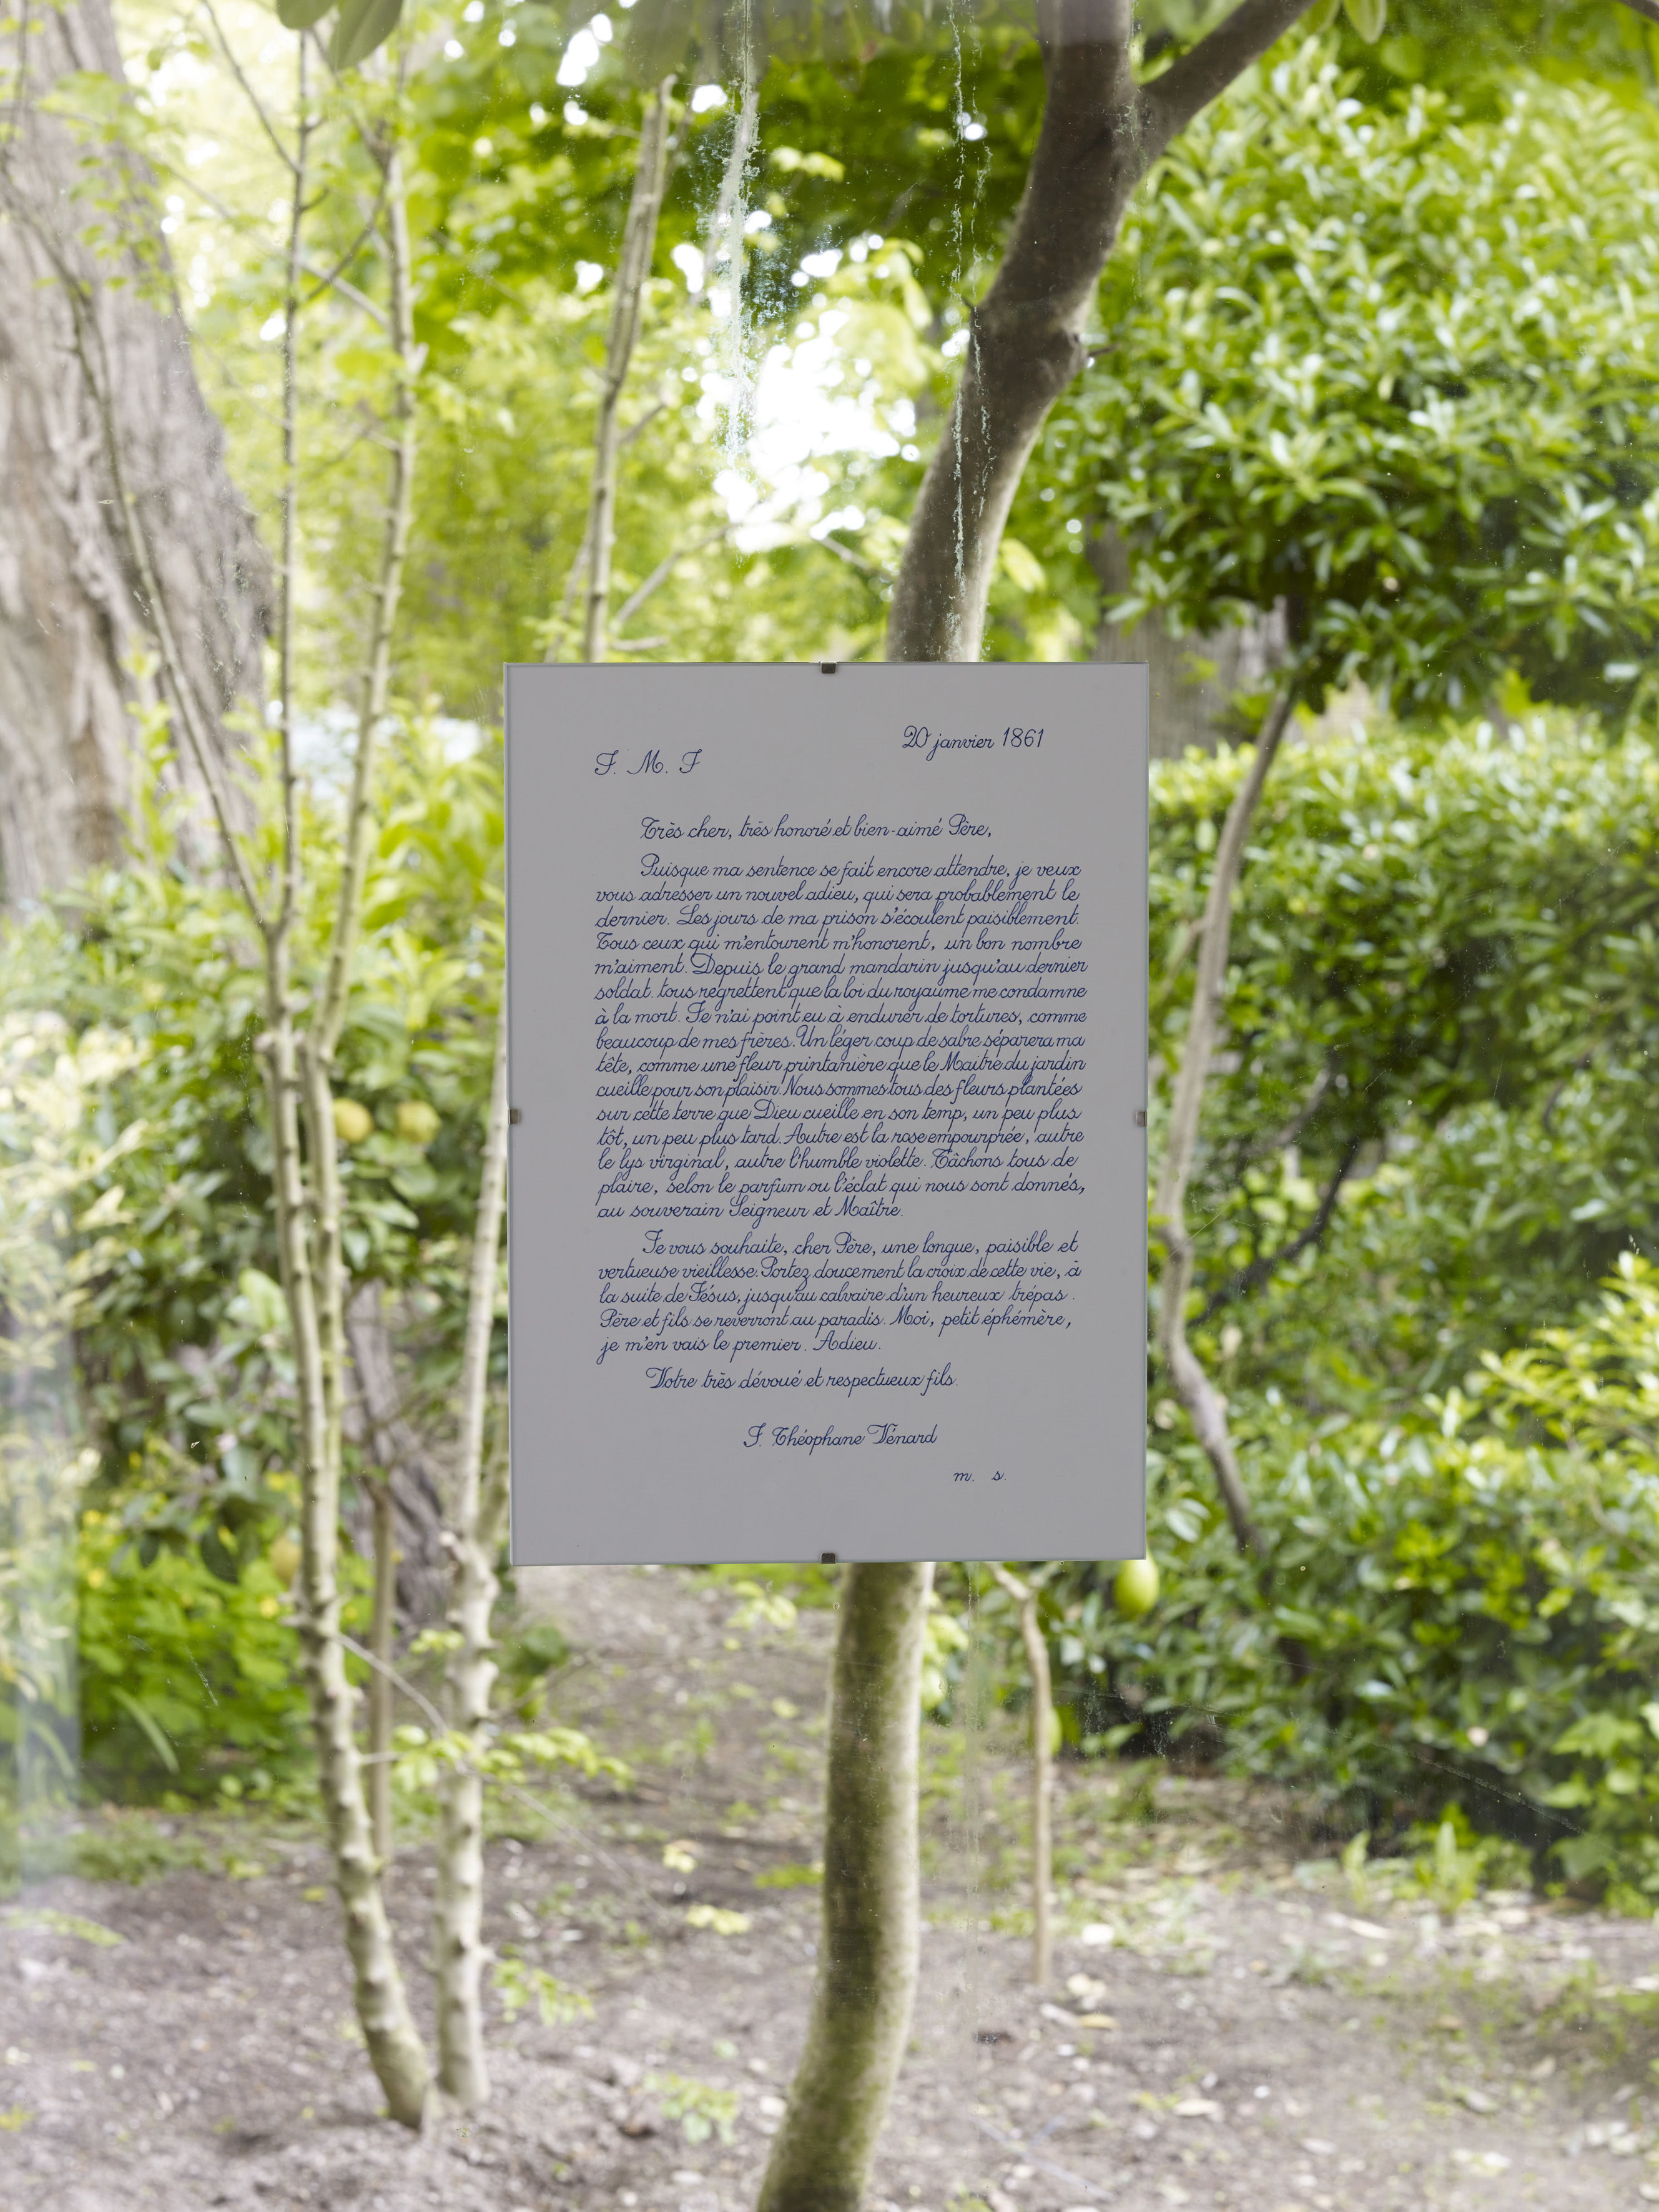 20 janvier 1861
J. M. J
Très cher, très honoré et bien-aimé Père,
Puisque ma sentence se fait encore attendre, je veux
vous adresser un nouvel adieu, qui sera probablement le
dernier. Les jours de ma prison s'écoulent paisiblement.
Tous ceux qui m'entourent m'honorent, un bon nombre
m'aiment. Depuis le grand mandarin jusqu'au dernier
soldat. tous regrettent que la loi du royaume me condamne
à la mort. Je n'ai point eu à endurer de tortures, comme
beaucoup de mes frères. Un léger coup de sabre séparera ma
tête, comme une fleur printanière que le Maitre du jardin
cueille pour son plaisir. Nous sommes tous des fleurs plantées
sur cette terre que Dieu cueille en son temp, un peu plus
tôt, un peu plus tard. Autre est la rose empourprée, autre
le lys virginal, autre l'humble violette. Tâchons tous de
plaire, selon le parfum ou l'éclat qui nous sont donnés,
au souverain Seigneur et Maître.
Je vous souhaite, cher Père, une longue, paisible et
vertueuse vieillesse. Portez doucement la croix de cette vie, à
la suite de Jésus, jusqu'au calvaire d'un heureux trépas.
Père et fils se reverront au paradis. Moi, petit éphémère,
je m'en vais le premier. Adieu.
Votre très dévoué et respectueux fils.
J. Théophane Vénard
m. s.